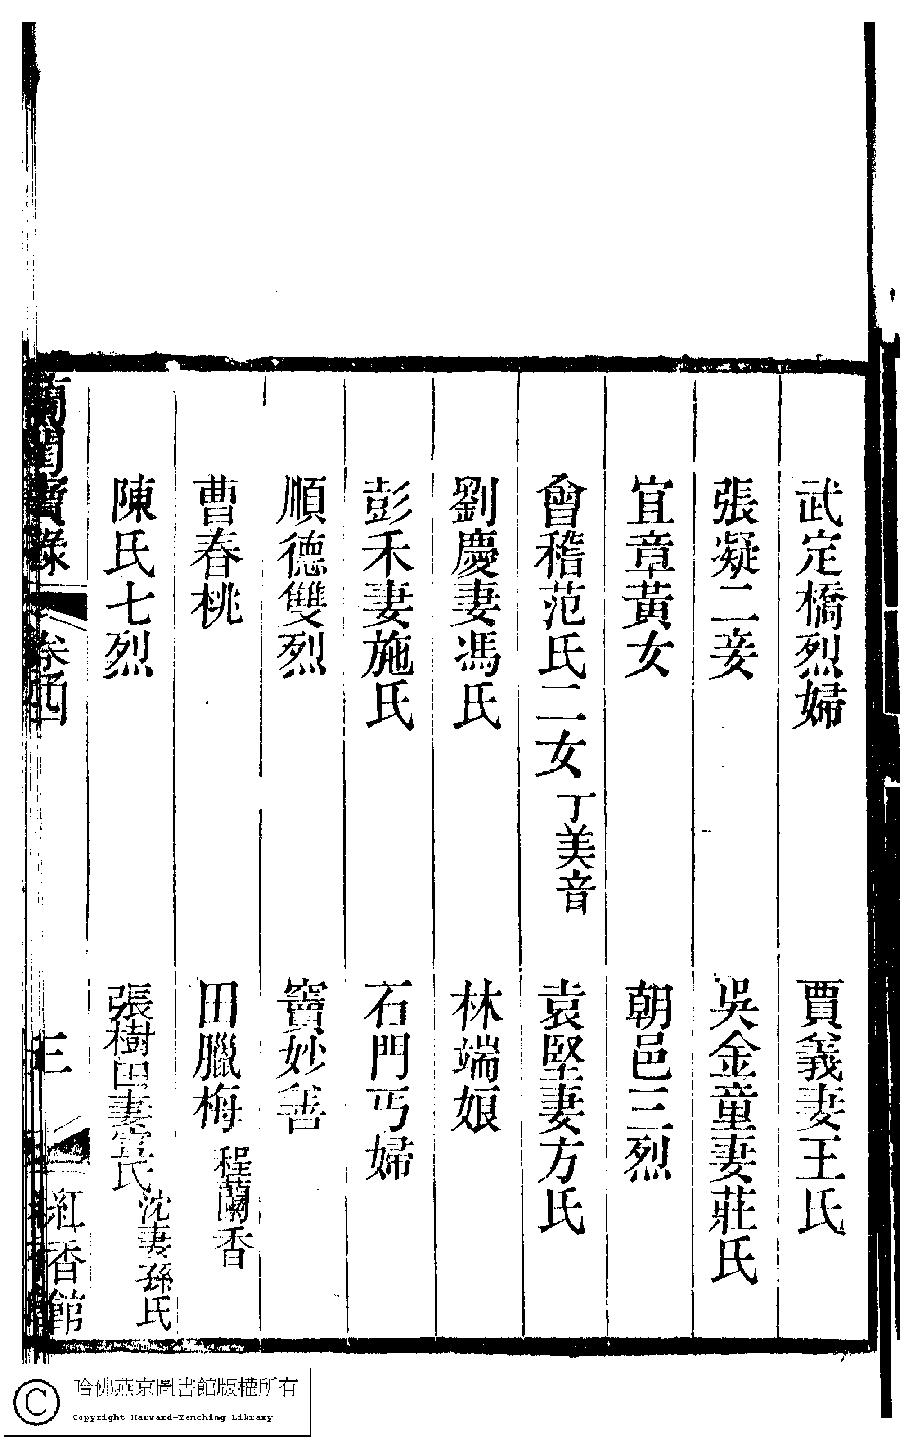 武定橋烈婦 賈義妻王氏
張凝二妾 吳金童妻莊氏
宜章黃女 朝邑三烈
會稽范氏二女 丁美音 袁堅妻方氏
劉慶妻馮氏 林端娘
彭禾妻施氏 石門丐婦
順德雙烈 竇妙善
曹春桃 田臘梅 程蘭香
陳氏七烈 張樹田妻宮氏 沈妻孫氏
蘭閨寶錄 卷四 三 紅香館
哈佛燕京圖書館版權所有
Copyright Harvard-Yenching Library